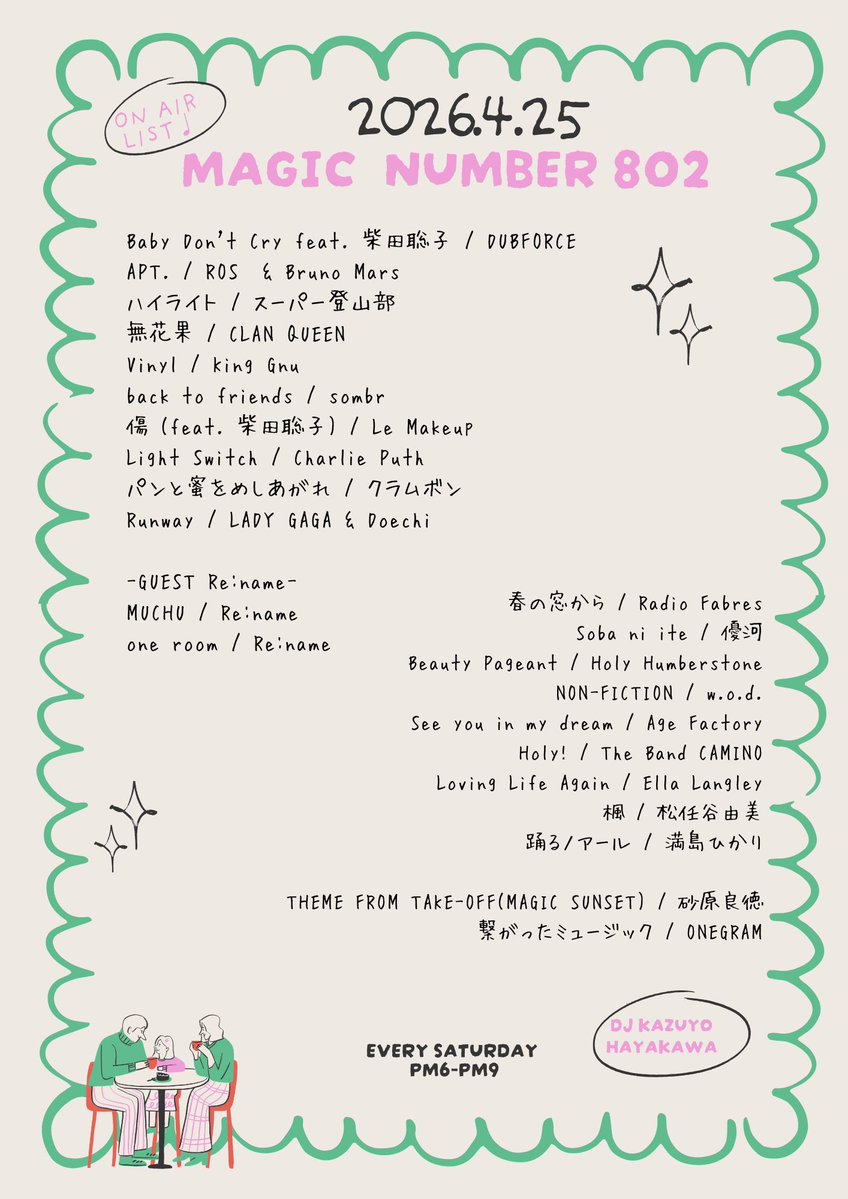 ON AIR
LIST♩
2026.4.25
MAGIC NUMBER 802
Baby Don't Cry feat. 柴田聡子 / DUBFORCE
APT. / ROS & Bruno Mars
ハイライト / スーパー登山部
無花果 / CLAN QUEEN
Vinyl / king Gnu
back to friends / sombr
傷 (feat. 柴田聡子) / Le Makeup
Light Switch / Charlie Puth
パンと蜜をめしあがれ / クラムボン
Runway / LADY GAGA & Doechi
-GUEST Re:name-
MUCHU / Re:name
one room / Re:name
春の窓から / Radio Fabres
Soba ni ite / 優河
Beauty Pageant / Holy Humberstone
NON-FICTION / w.o.d.
See you in my dream / Age Factory
Holy! / The Band CAMINO
Loving Life Again / Ella Langley
楓 / 松任谷由美
踊るノアール / 満島ひかり
THEME FROM TAKE-OFF(MAGIC SUNSET) / 砂原良徳
繋がったミュージック / ONEGRAM
EVERY SATURDAY
PM6-PM9
DJ KAZUYO
HAYAKAWA